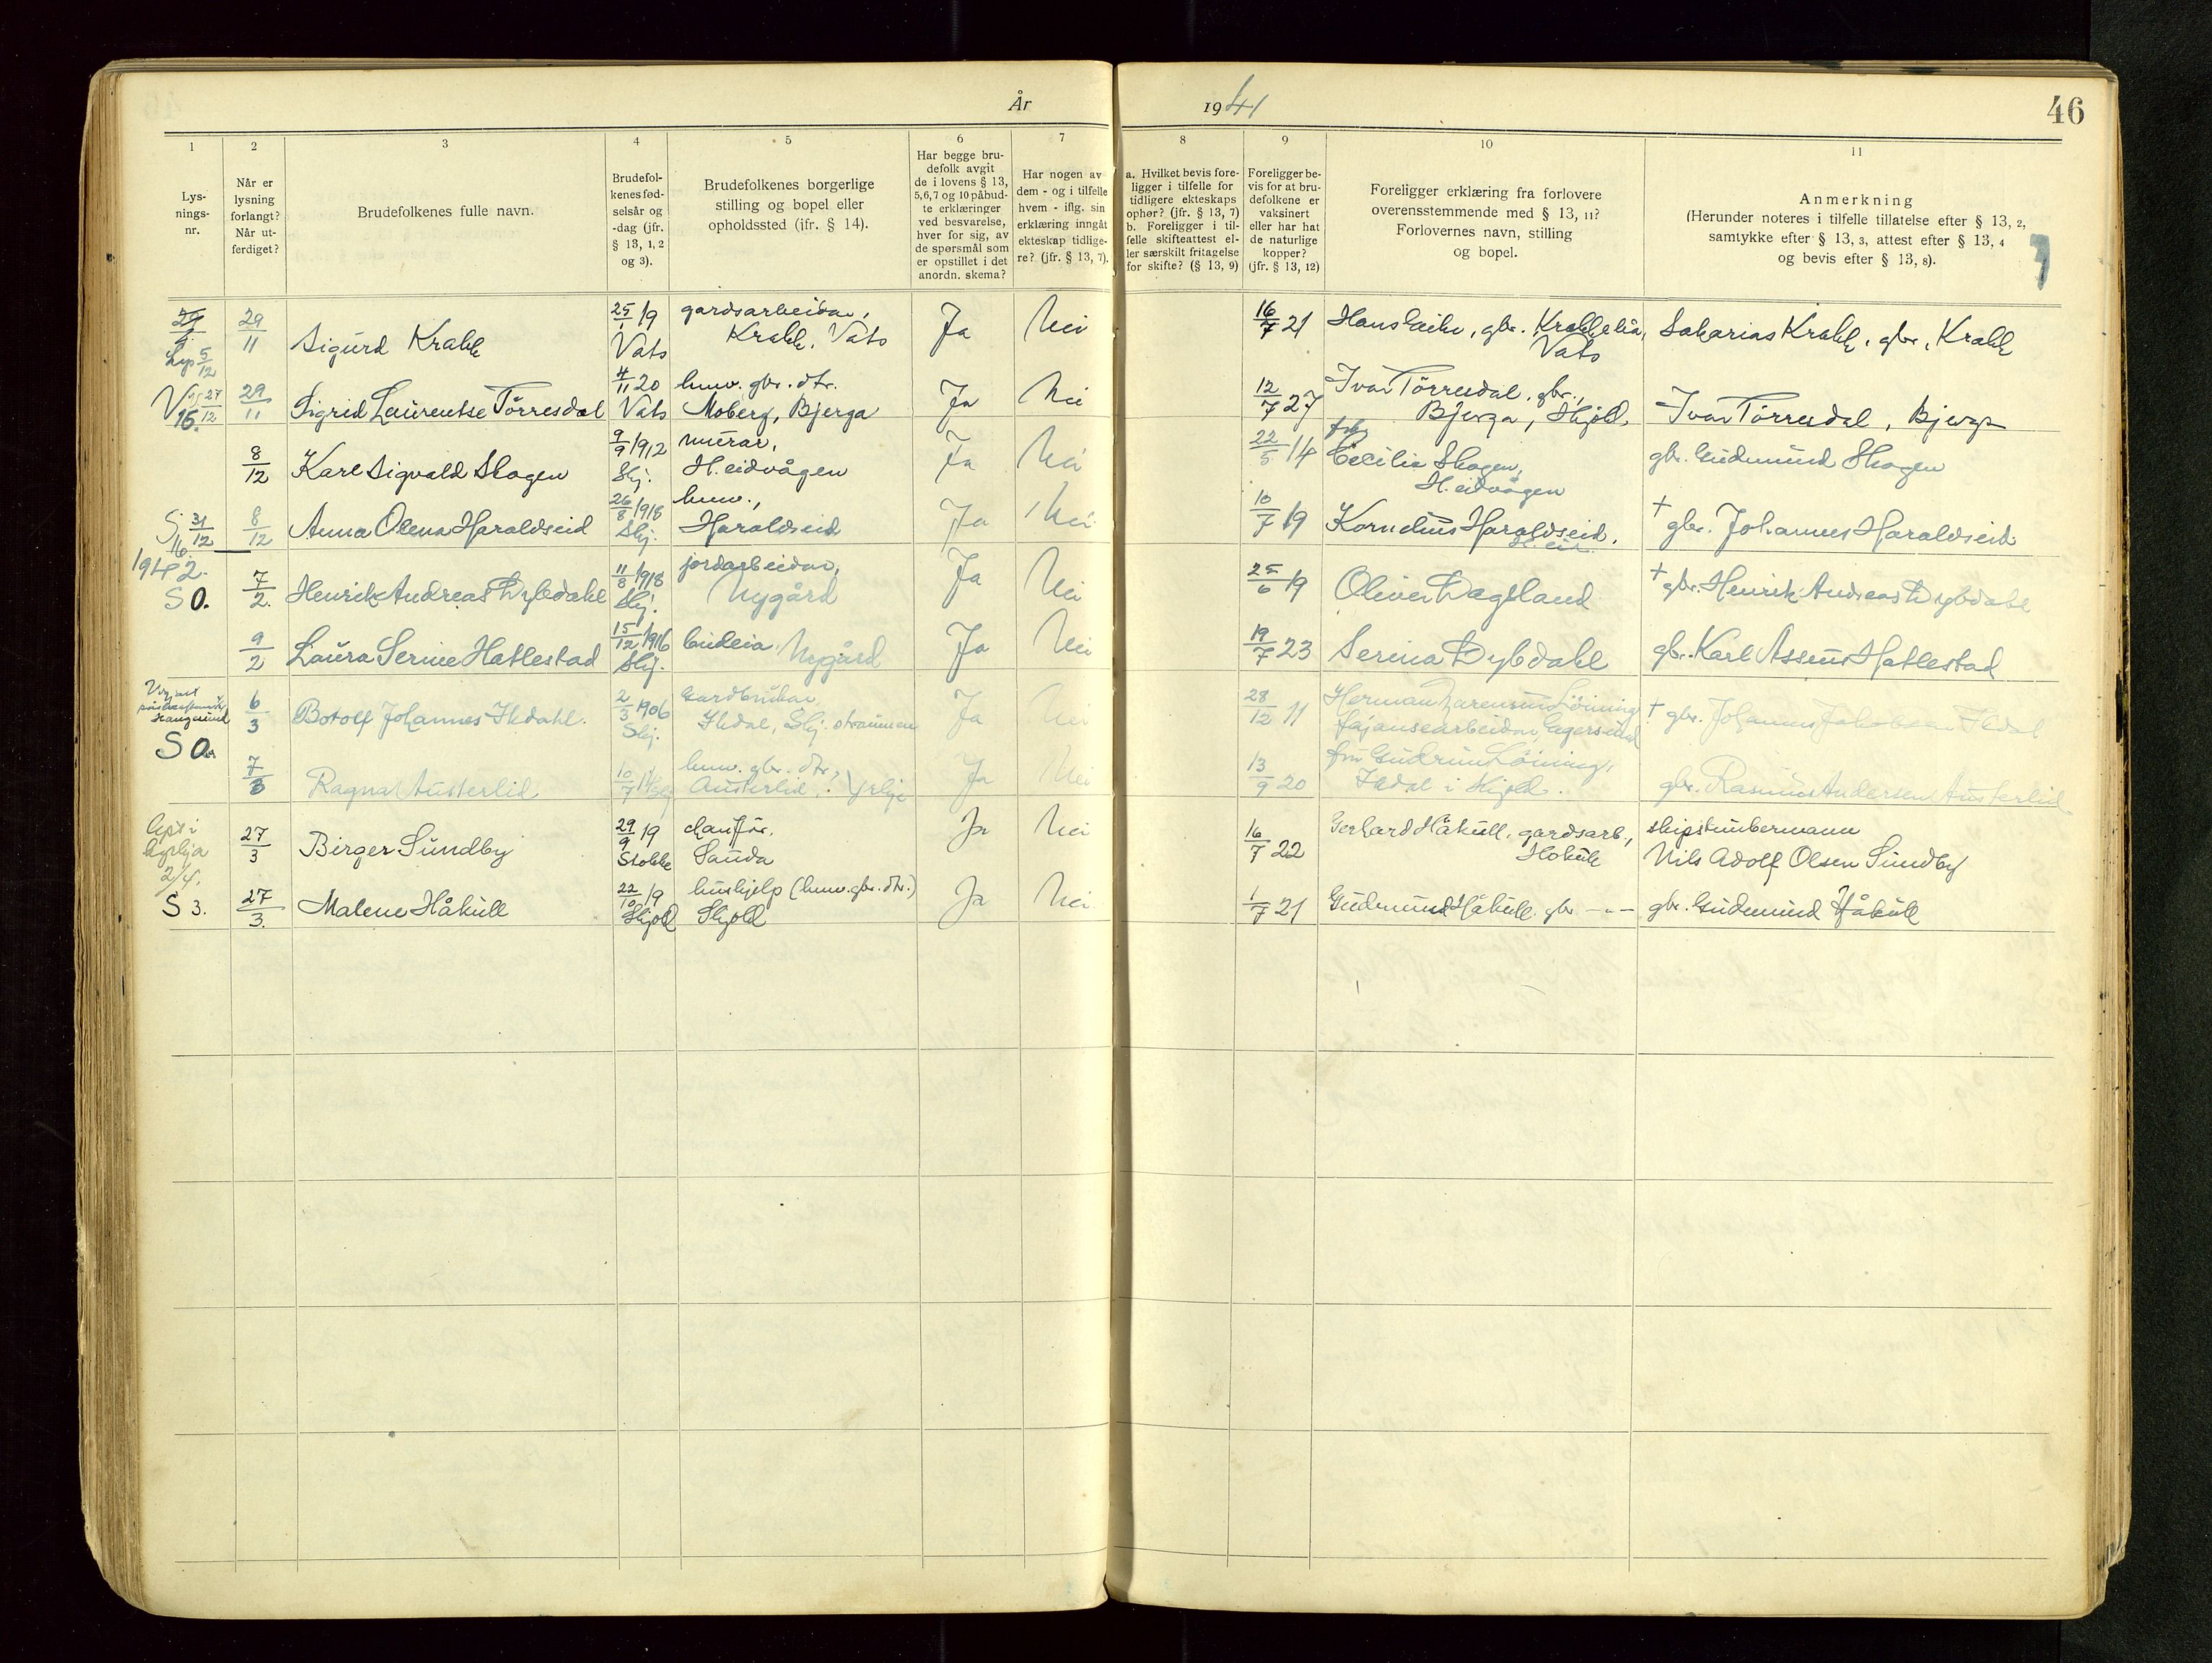 År 1941
46
1
2
3
4
5
6
7
8
9
10
11
Lys-
nings-
nr.
Når er
lysning
forlangt?
Når ut-
ferdiget?
Brudefolkenes fulle navn.
Brudefol-
kenes fød-
selsår og
-dag (jfr.
§ 13, 1, 2
og 3).
Brudefolkenes borgerlige
stilling og bopel eller
opholdssted (jfr. § 14).
Har begge bru-
defolk avgit
de i lovens § 13,
5,6,7 og 10 påbud-
te erklæringer
ved besvarelse,
hver for sig, av
de spørsmål som
er opstillet i det
anordn. skema?
Har nogen av
dem - og i tilfelle
hvem - iflg. sin
erklæring inngåt
ekteskap tidlige-
re? (jfr. § 13, 7).
a. Hvilket bevis fore-
ligger i tilfelle for
tidligere ekteskaps
ophør? (jfr. § 13, 7)
b. Foreligger i til-
felle skifteattest el-
ler særskilt fritagelse
for skifte? (§ 13, 9)
Foreligger be-
vis for at bru-
defolkene er
vaksinert
eller har hat
de naturlige
kopper?
(jfr. § 13, 12)
Foreligger erklæring fra forlovere
overensstemmende med § 13, 11?
Forlovernes navn, stilling
og bopel.
Anmerkning
(Herunder noteres i tilfelle tillatelse efter § 13, 2,
samtykke efter § 13, 3, attest efter § 13, 4
og bevis efter § 13, 8).
5/12
29/11 Sigurd Krakk 25/1 19 Vats gardsarbeidar, Krakk, Vats Ja Nei 16/7 21
Vats
Sakarias Krakk, gbr., Krakk
V 27/12
16.
29/11 Sigrid Laurentse Tørresdal 4/11 20 Vats husv. gbr. dtr. Moberg, Bjerga Ja Nei 12/7 27 Ivar Tørresdal, gbr.,
Bjerga, Skjold.
Ivar Tørresdal, Bjerga
8/12 Karl Sigvald Skogen 9/9 1912 Skj. murar, H.eidvågen Ja Nei 22/5 14 Cecilie Skogen,
H.eidvågen
gbr. Gudmund Skogen
S 31/12
16.
8/12 Anna Olena Haraldseid 26/8 1918 Skj. husv., Haraldseid Ja Nei 10/7 19 Kornelius Haraldseid.
† gbr. Johannes Haraldseid
1942.
S 0.
7/2. Henrik Andreas Dybdahl 11/8 1918 Skj. jordarbeidar, Nygård Ja Nei 25/6 19 Oliver Dagsland
† gbr. Henrik Andreas Dybdahl
9/2 Laura Serine Hatlestad 15/12 1916 Skj. budeia, Nygård Ja Nei 19/7 23 Serina Dybdahl
gbr. Karl Asseus Hatlestad
Haugesund
S 0.
6/3 Botolf Johannes Ilsdahl. 2/3 1906 Skj. Gardbrukar Ja Nei 28/12 11 Herman
fajansearbeidar, Egersund
† gbr. Johannes Jakobsen
7/3 Ragna Austerlid 10/7 husv. gbr. dtr., Austerlid Ja Nei 13/9 20 fru Gudrun
i Skjold.
gbr. Rasmus Andersen Austerlid
2/4.
27/3 Birger Sundby 29/9 19 Stokke chauffør, Sauda Ja Nei 16/7 22 Gerhard Håkull, gardsarb.,
Hokull
skipstømbermann
Nils Adolf Olsen Sundby
S 3.
27/3. Malene Håkull 22/10 19 Skjold hushjelp (husv. gbr. dtr.) Skjold Ja Nei 1/7 21 Gudmund Håkull gbr. - " -
gbr. Gudmund Håkull